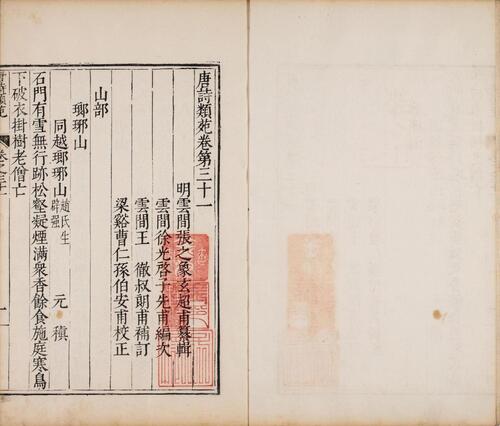 唐詩類苑卷第三十一
明雲間張之象玄超甫纂輯
雲間徐光啓子先甫編次
雲間王徹叔朗甫補訂
梁谿曹仁孫伯安甫校正
山部
瑯琊山
同越瑯琊山趙氏生辟强 元稹
石門有雪無行跡松壑凝煙滿衆香餘食施庭寒鳥
下破衣掛樹老僧亡